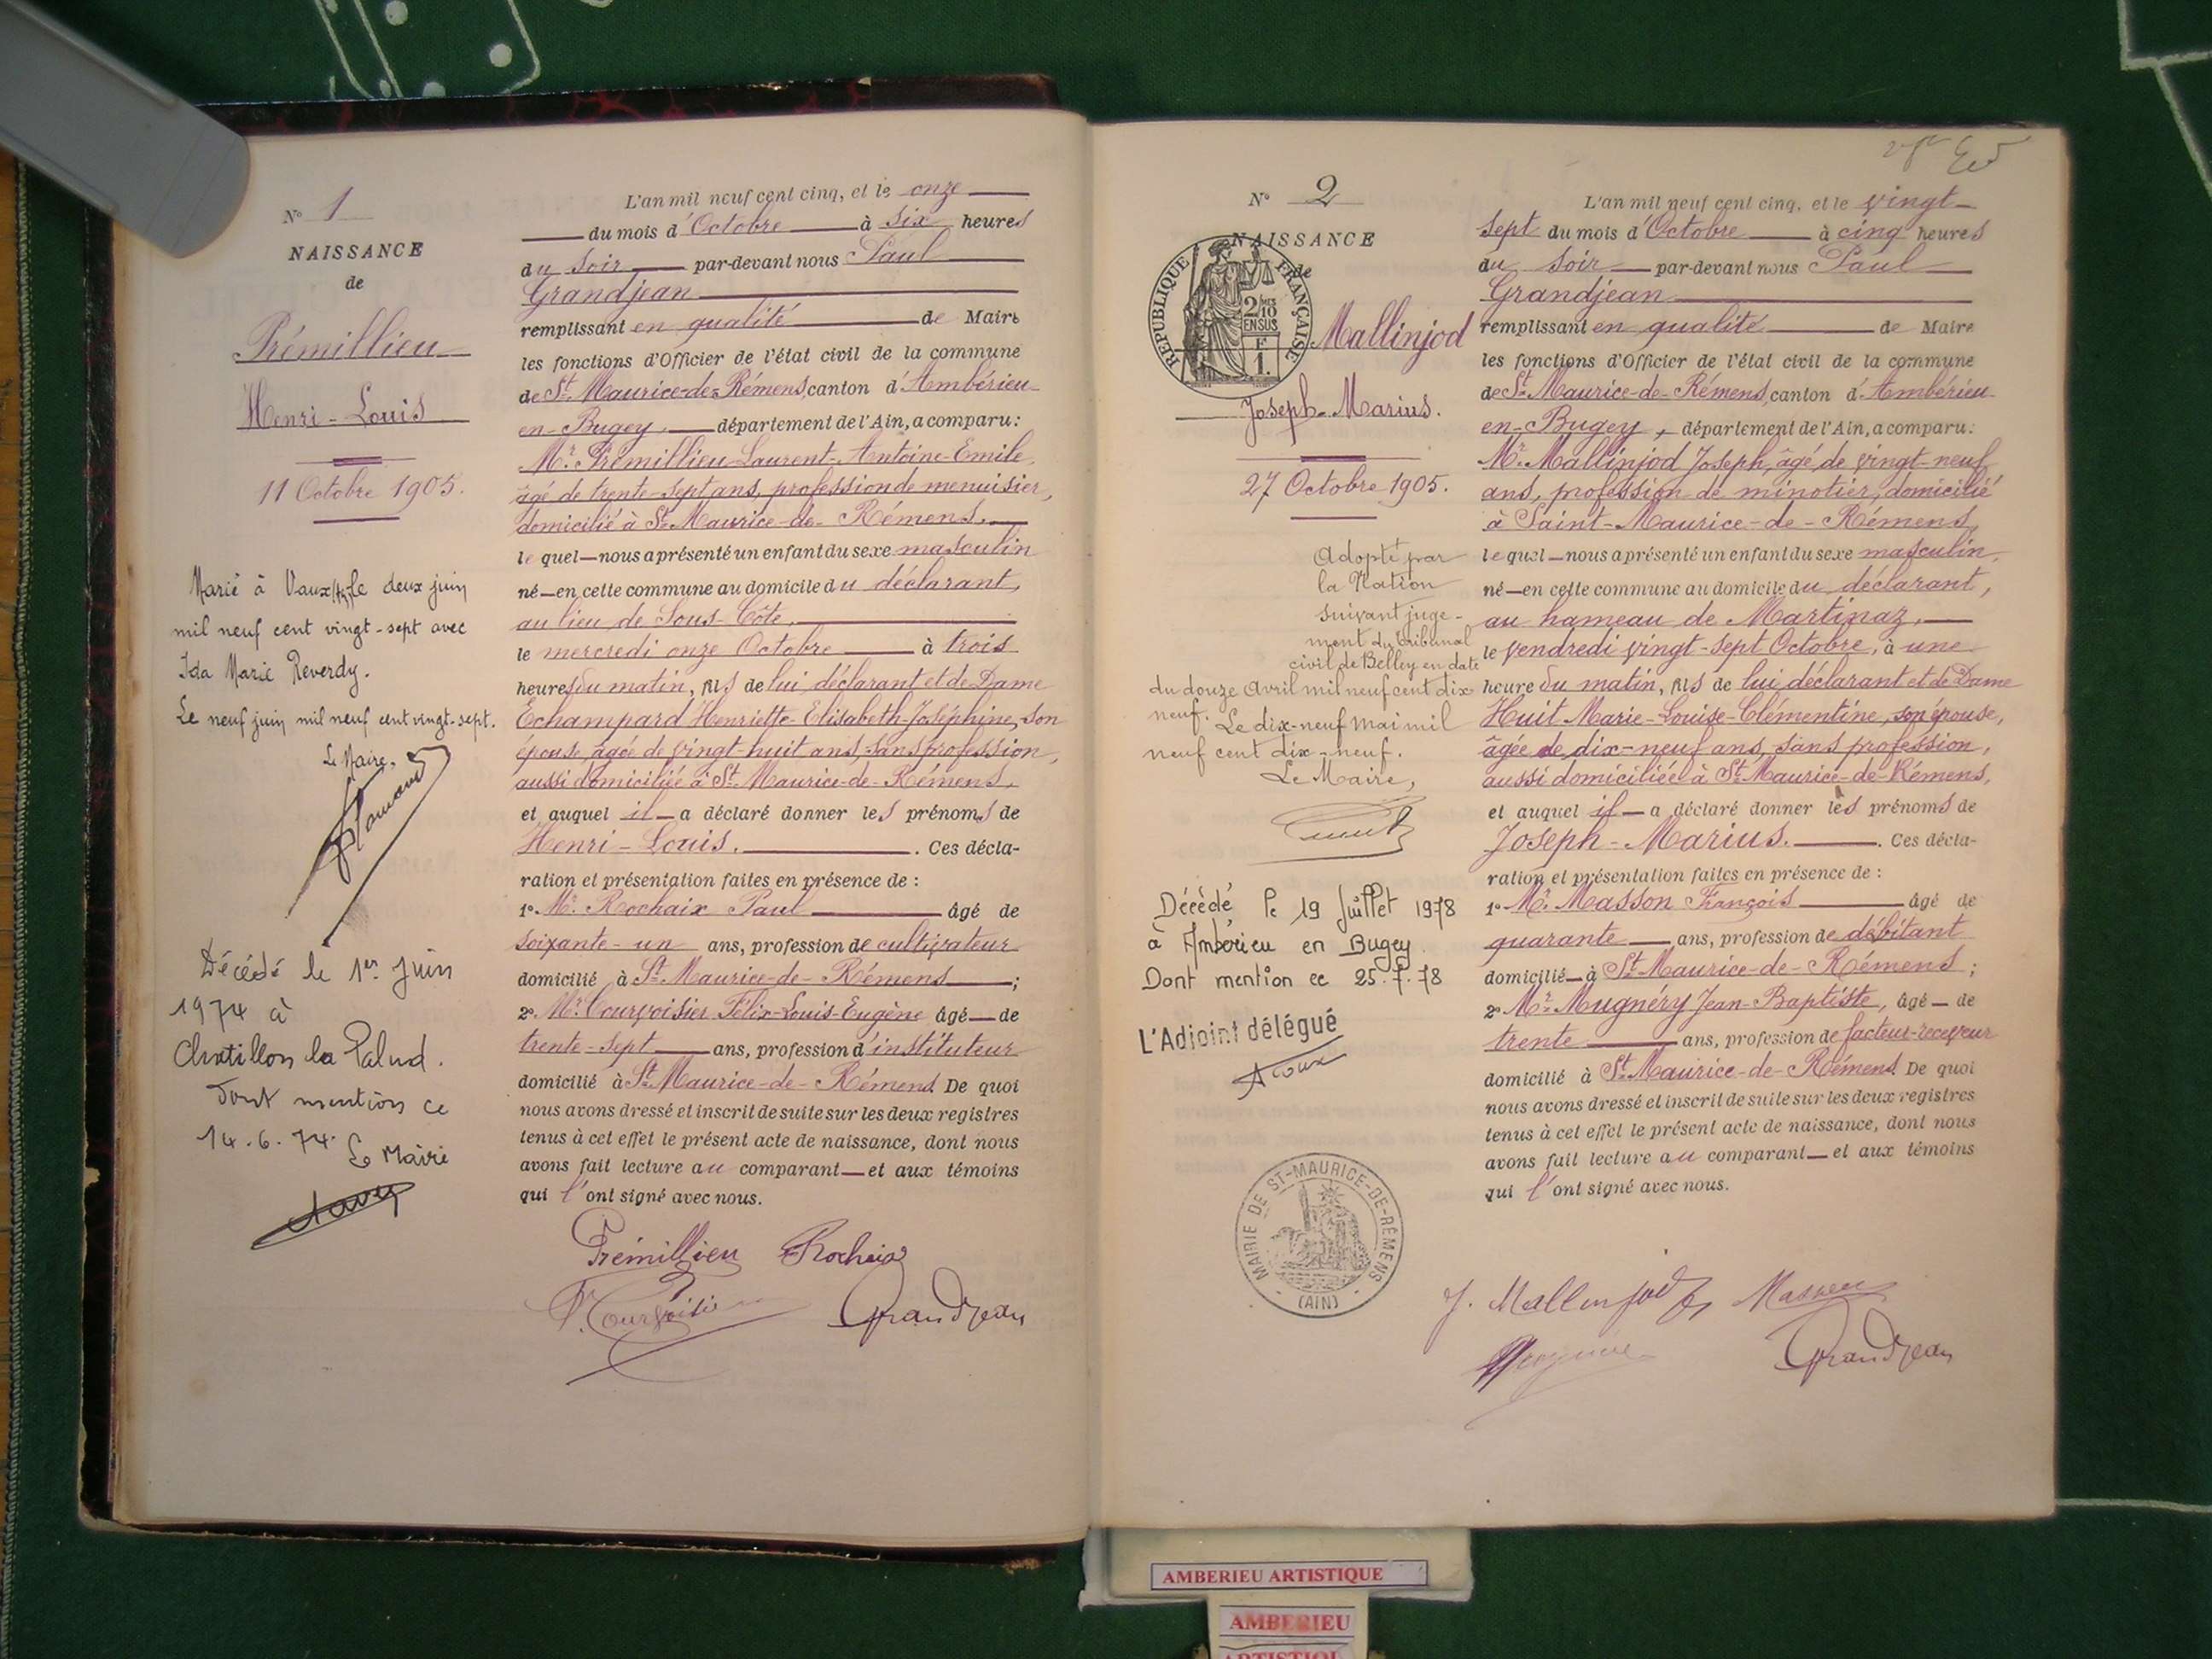 N° 1
NAISSANCE
de
Prémillieu
Henri-Louis
11 Octobre 1905.
Marié à Vaux (Ain) le deux juin
mil neuf cent vingt-sept avec
Ida Marie Reverdy.
Le neuf juin mil neuf cent vingt-sept.
Le Maire,
Décédé le 1er Juin
1974 à
Chatillon la Palud.
Dont mention ce
14.6.74. Le Maire
L'an mil neuf cent cinq, et le onze
du mois d'Octobre à six heures
du soir par-devant nous Paul
Grandjean
remplissant en qualité de Maire
les fonctions d'Officier de l'état civil de la commune
de St Maurice-de-Rémens, canton d'Ambérieu-
en-Bugey, département de l'Ain, a comparu:
Mr. Prémillieu Laurent-Antoine-Emile,
âgé de trente-sept ans, profession de menuisier,
domicilié à St Maurice-de-Rémens,
lequel nous a présenté un enfant du sexe masculin
né en cette commune au domicile du déclarant,
au lieu de Sous-Côte,
le mercredi onze Octobre à trois
heures du matin, fils de lui déclarant et de Dame
Echampard Henriette-Elisabeth-Joséphine, son
épouse, âgée de vingt-huit ans, sans profession,
aussi domiciliée à St Maurice-de-Rémens,
et auquel il a déclaré donner les prénoms de
Henri-Louis. . Ces décla-
ration et présentation faites en présence de :
1°. Mr. Rochaix Paul âgé de
soixante-un ans, profession de cultivateur
domicilié à St Maurice-de-Rémens ;
2°. Mr. Courvoisier Félix-Louis-Eugène âgé de
trente-sept ans, profession d'instituteur
domicilié à St Maurice-de-Rémens De quoi
nous avons dressé et inscrit de suite sur les deux registres
tenus à cet effet le présent acte de naissance, dont nous
avons fait lecture au comparant et aux témoins
qui l'ont signé avec nous.
Prémillieu Rochaix
F. Courvoisier Grandjean
N° 2
NAISSANCE
de
REPUBLIQUE FRANÇAISE
2/10
EN SUS
F
1.
Mallinjod
Joseph-Marius.
27 Octobre 1905.
Adopté par
la Nation
suivant juge-
ment du tribunal
civil de Belley en date
du douze Avril mil neuf cent dix
neuf. Le dix-neuf Mai mil
neuf cent dix-neuf.
Le Maire,
Décédé le 19 Juillet 1978
à Ambérieu en Bugey
Dont mention ce 25.7.78
L'Adjoint délégué
MAIRIE DE ST-MAURICE-DE-RÉMENS
(AIN)
L'an mil neuf cent cinq, et le vingt-
sept du mois d'Octobre à cinq heures
du soir par-devant nous Paul
Grandjean
remplissant en qualité de Maire
les fonctions d'Officier de l'état civil de la commune
de St Maurice-de-Rémens, canton d'Ambérieu-
en-Bugey, département de l'Ain, a comparu:
Mr. Mallinjod Joseph, âgé de vingt-neuf
ans, profession de minotier, domicilié
à Saint-Maurice-de-Rémens,
lequel nous a présenté un enfant du sexe masculin,
né en cette commune au domicile du déclarant,
au hameau de Martinaz,
le vendredi vingt-sept Octobre, à une
heure du matin, fils de lui déclarant et de Dame
Huit Marie-Louise-Clémentine, son épouse,
âgée de dix-neuf ans, sans profession,
aussi domiciliée à St Maurice-de-Rémens,
et auquel il a déclaré donner les prénoms de
Joseph-Marius. . Ces décla-
ration et présentation faites en présence de :
1° Mr. Masson François âgé de
quarante ans, profession de débitant
domicilié à St Maurice-de-Rémens ;
2° Mr. Mugnéry Jean-Baptiste, âgé de
trente ans, profession de facteur-receveur
domicilié à St Maurice-de-Rémens De quoi
nous avons dressé et inscrit de suite sur les deux registres
tenus à cet effet le présent acte de naissance, dont nous
avons fait lecture au comparant et aux témoins
qui l'ont signé avec nous.
J. Mallinjod Masson
Grandjean
AMBERIEU ARTISTIQUE
AMBERIEU
ARTISTIQUE